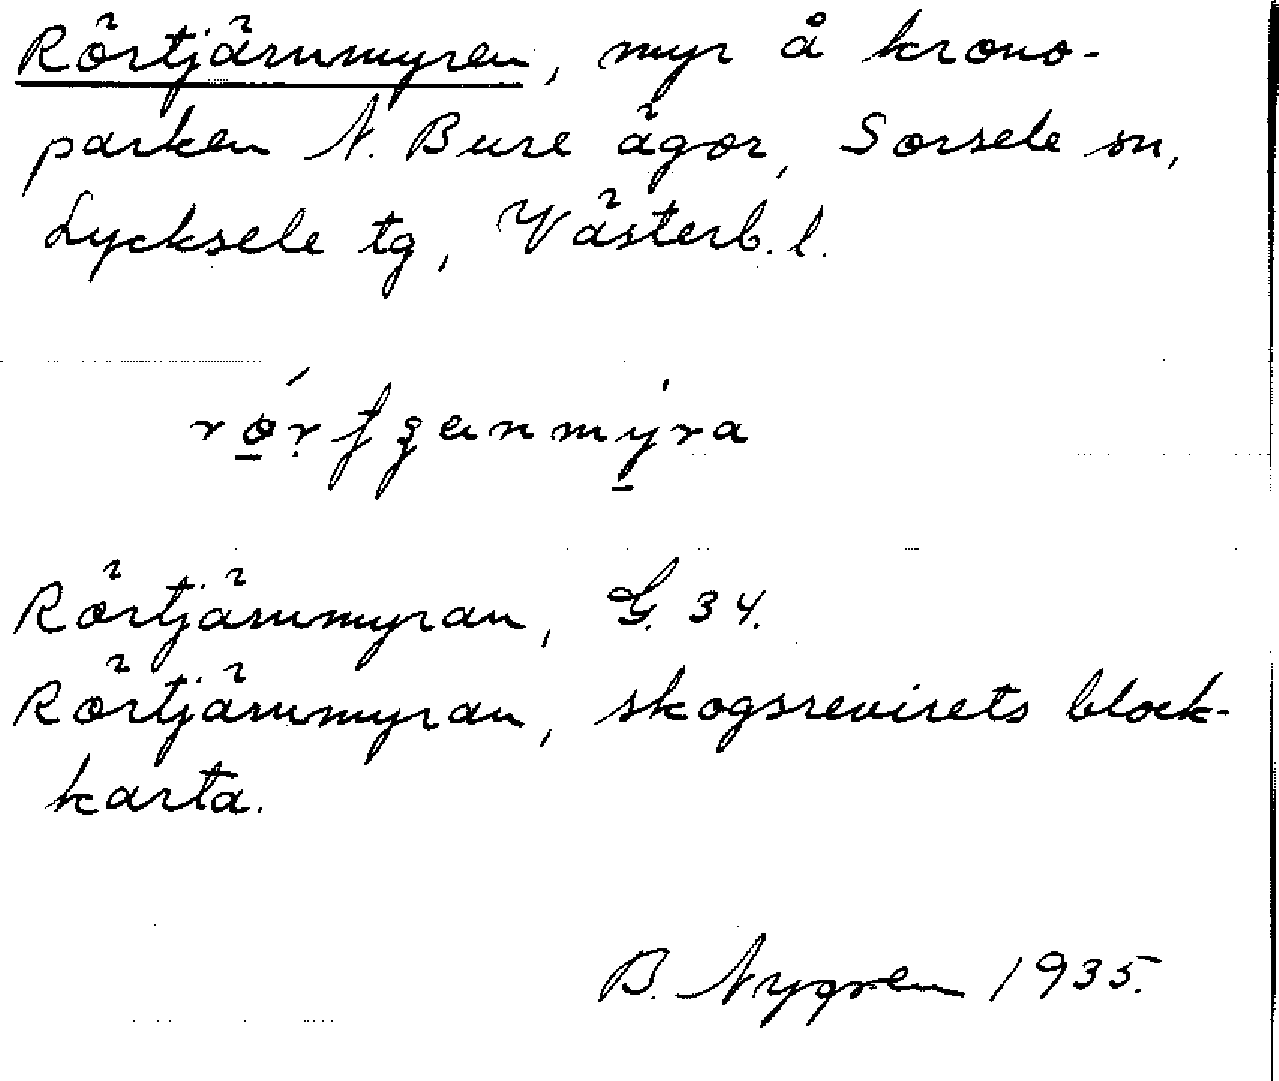 Rörtjärnmyren, myr å krono-
parken N. Bure ägor, Sorsele sn,
Lycksele tg, Västerb. l.
Rörtjärnmyran, G. 34.
Rörtjärnmyran, skogsrevirets block-
karta.
B. Nygren 1935.